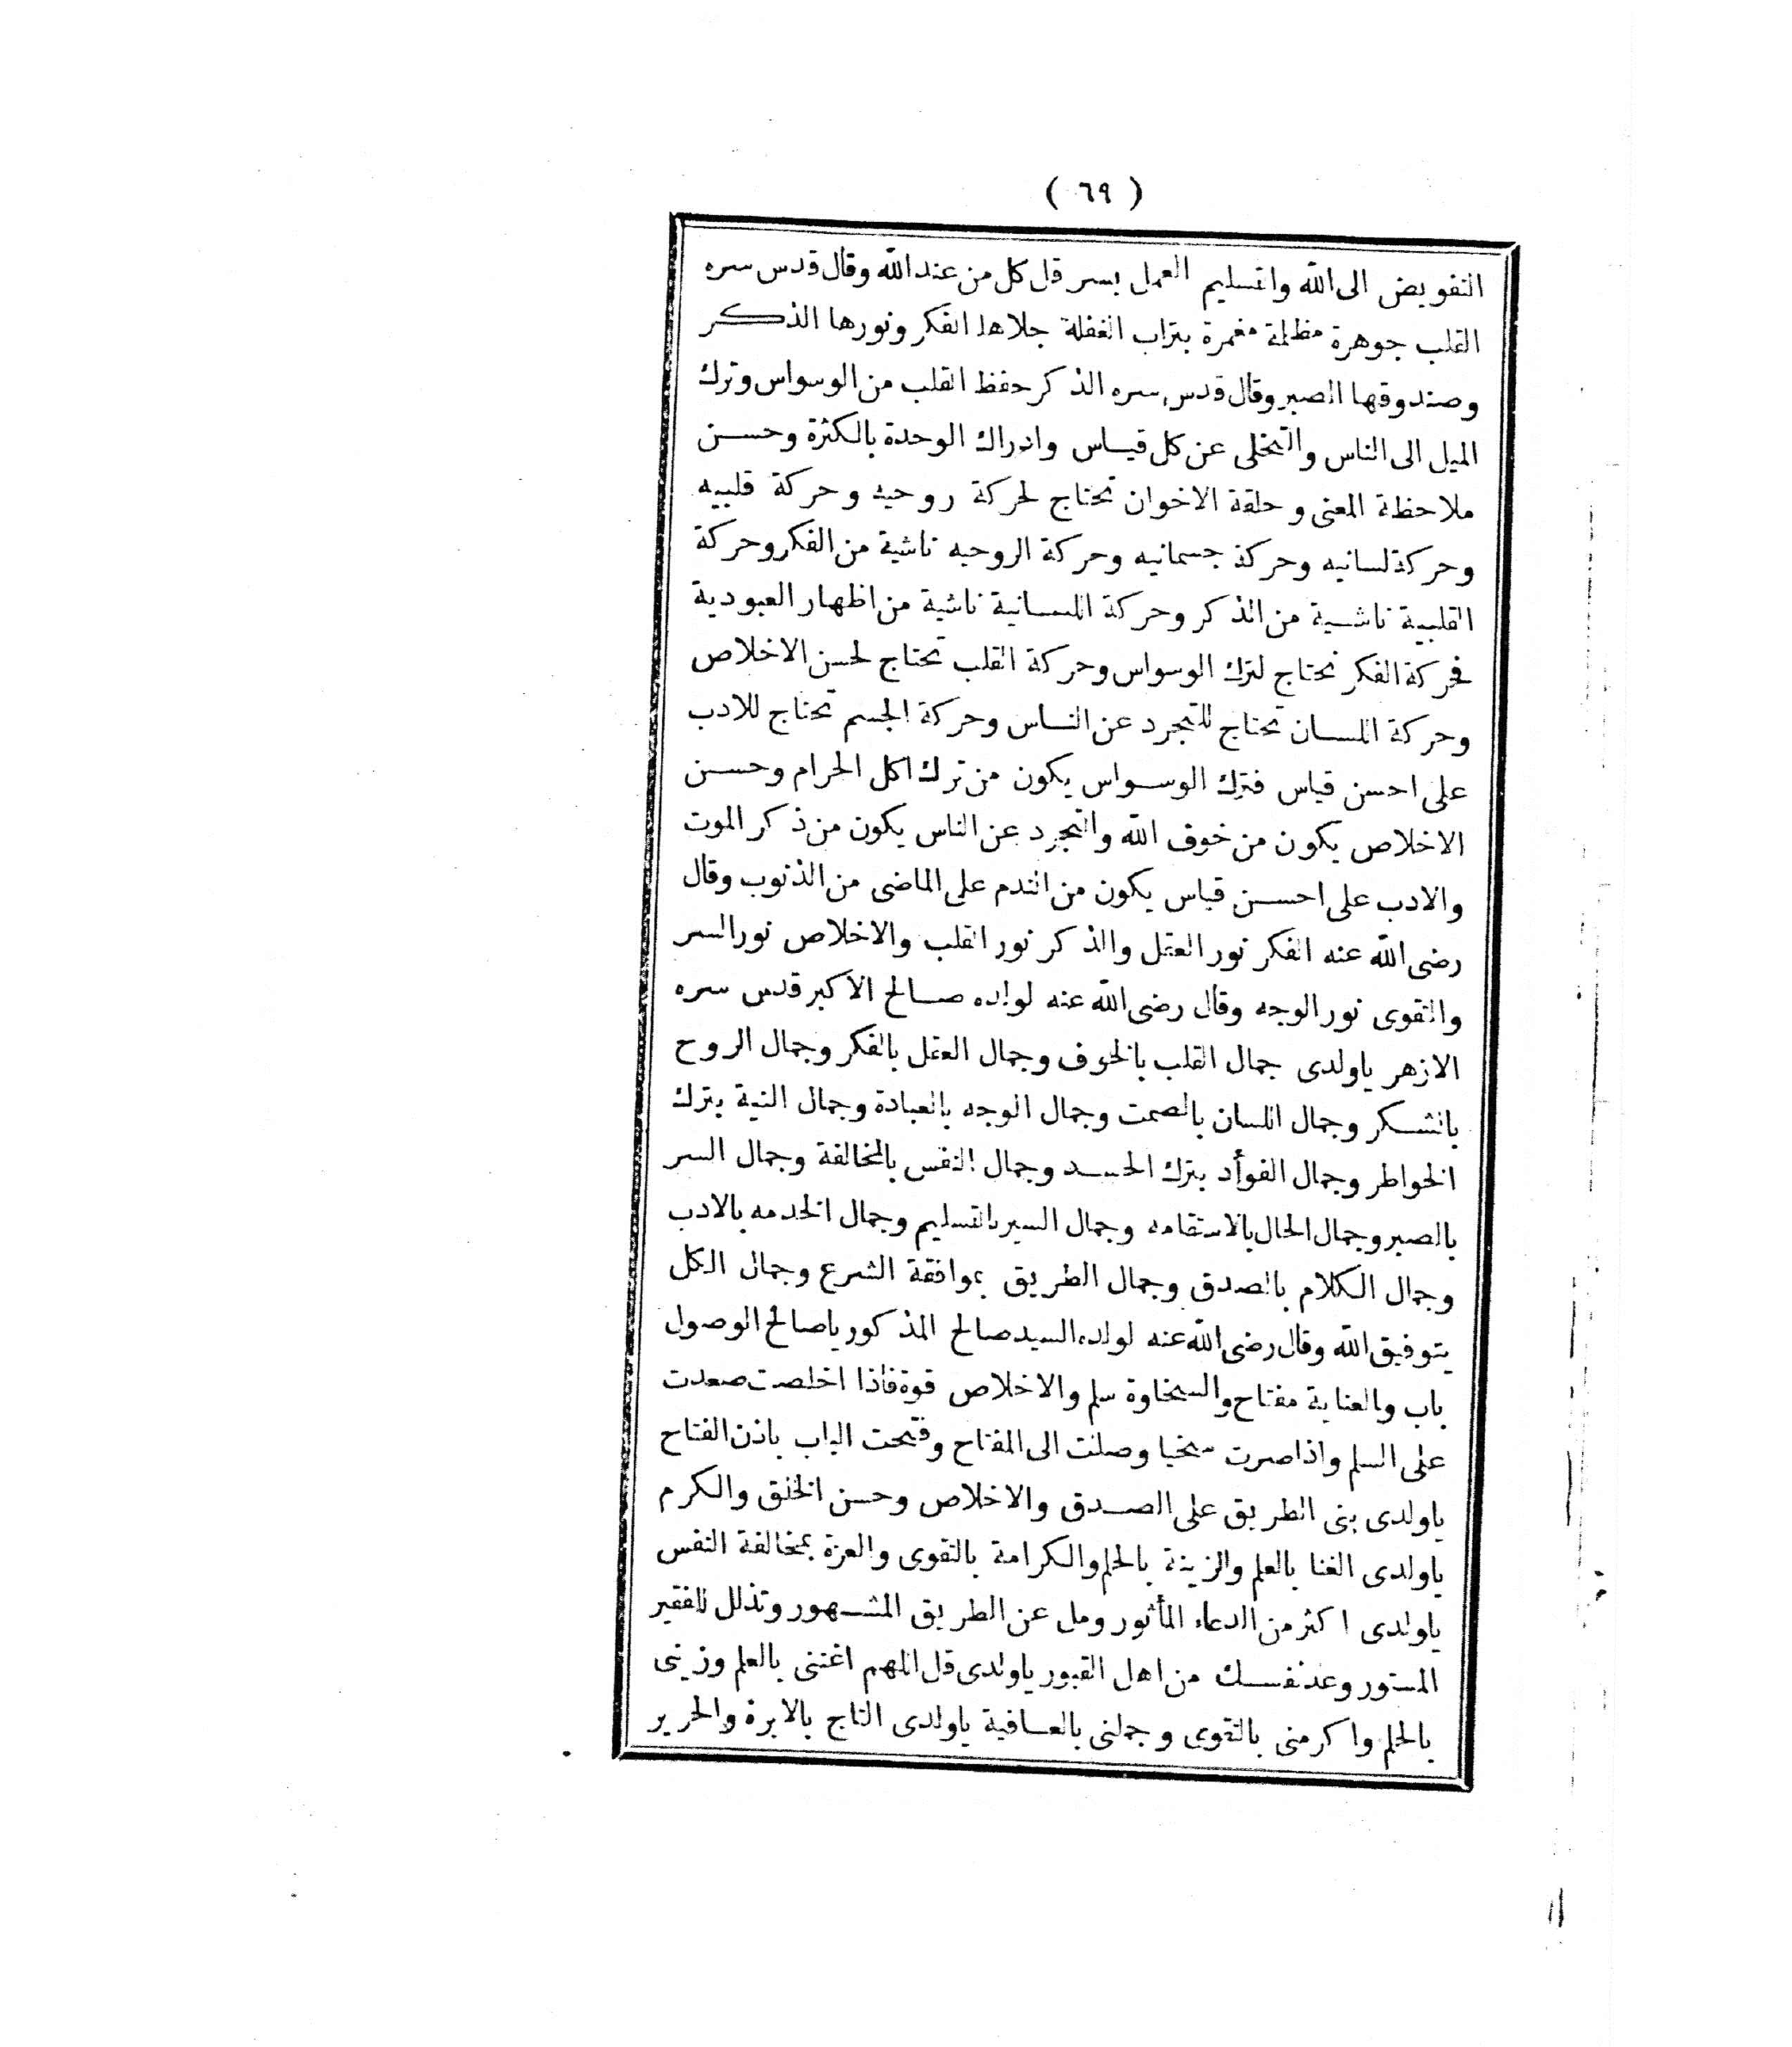 ( ٦٩ )
التفويض الى الله والتسليم العمل بسر قل كل من عند الله وقال قدس سره
القلب جوهرة مظلمة مغمرة بتراب الغفلة جلاها الفكر ونورها الذكر
وصندوقها الصبر وقال قدس سره الذكر حفظ القلب من الوسواس وترك
الميل الى الناس والتخلى عن كل قياس وادراك الوحدة بالكثرة وحسن
ملاحظة المعنى وحلقة الاخوان تحتاج لحركة روحيه وحركة قلبيه
وحركة لسانيه وحركة جسمانيه وحركة الروحيه ناشية من الفكر وحركة
القلبية ناشية من الذكر وحركة اللسانية ناشية من اظهار العبودية
فحركة الفكر تحتاج لترك الوسواس وحركة القلب تحتاج لحسن الاخلاص
وحركة اللسان تحتاج للتجرد عن الناس وحركة الجسم تحتاج للادب
على احسن قياس فترك الوسواس يكون من ترك اكل الحرام وحسن
الاخلاص يكون من خوف الله والتجرد عن الناس يكون من ذكر الموت
والادب على احسن قياس يكون من الندم على الماضى من الذنوب وقال
رضى الله عنه الفكر نور العقل والذكر نور القلب والاخلاص نور السر
والتقوى نور الوجه وقال رضى الله عنه لولده صالح الاكبر قدس سره
الازهر ياولدى جمال القلب بالخوف وجمال العقل بالفكر وجمال الروح
بالشكر وجمال اللسان بالصمت وجمال الوجه بالعبادة وجمال النية بترك
الخواطر وجمال الفوأد بترك الحسد وجمال النفس بالمخالفة وجمال السر
بالصبر وجمال الحال بالاستقامه وجمال السير بالتسليم وجمال الخدمه بالادب
وجمال الكلام بالصدق وجمال الطريق بموافقة الشرع وجمال الكل
بتوفيق الله وقال رضى الله عنه لولده السيد صالح المذكور ياصالح الوصول
باب والعناية مفتاح والسخاوة سلم والاخلاص قوة فاذا اخلصت صعدت
على السلم واذا صرت سخيا وصلت الى المفتاح وفتحت الباب باذن الفتاح
ياولدى بنى الطريق على الصدق والاخلاص وحسن الخلق والكرم
ياولدى الغنا بالعلم والزينة بالحلم والكرامة بالتقوى والعزة بمخالفة النفس
ياولدى اكثر من الدعاء المأثور ومل عن الطريق المشهور وتذلل للفقير
المستور وعد نفسك من اهل القبور ياولدى قل اللهم اغننى بالعلم وزينى
بالحلم واكرمنى بالتقوى وجملنى بالعافية ياولدى التاج بالابرة والحرير